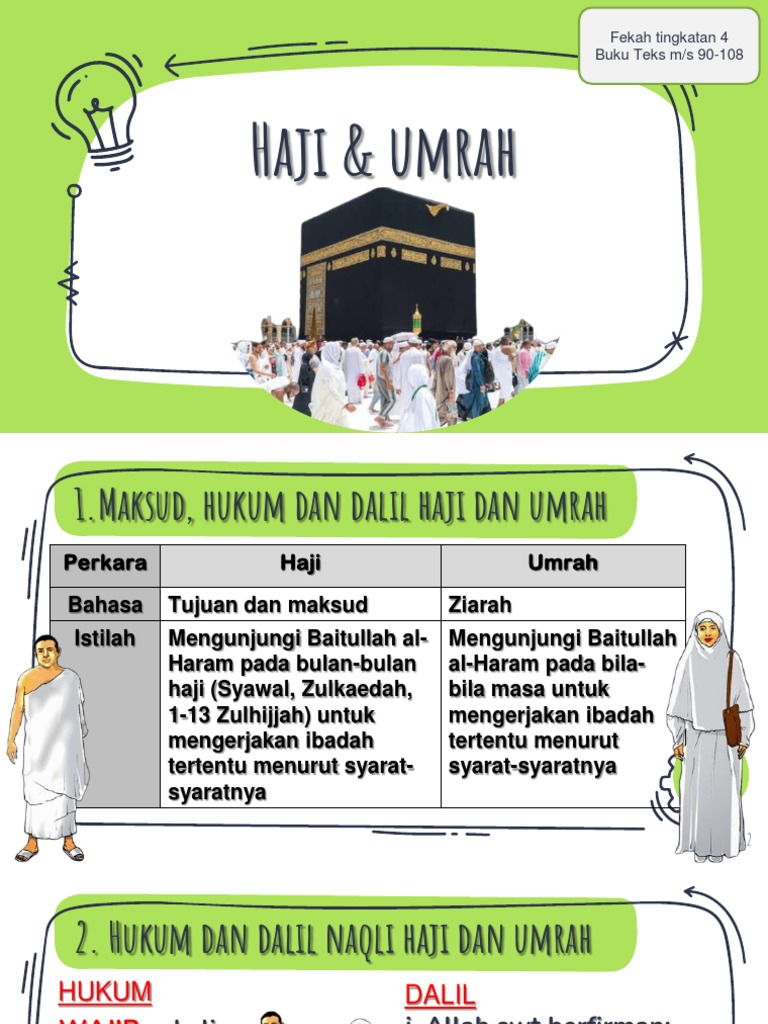 Fekah tingkatan 4
Buku Teks m/s 90-108
Haji & umrah
1. Maksud, hukum dan dalil haji dan umrah
Perkara Haji Umrah
Bahasa Tujuan dan maksud Ziarah
Istilah Mengunjungi Baitullah al-
Haram pada bulan-bulan
haji (Syawal, Zulkaedah,
1-13 Zulhijjah) untuk
mengerjakan ibadah
tertentu menurut syarat-
syaratnya
Mengunjungi Baitullah
al-Haram pada bila-
bila masa untuk
mengerjakan ibadah
tertentu menurut
syarat-syaratnya
2. Hukum dan dalil naqli haji dan umrah
HUKUM
DALIL
i. Allah swt berfirman: